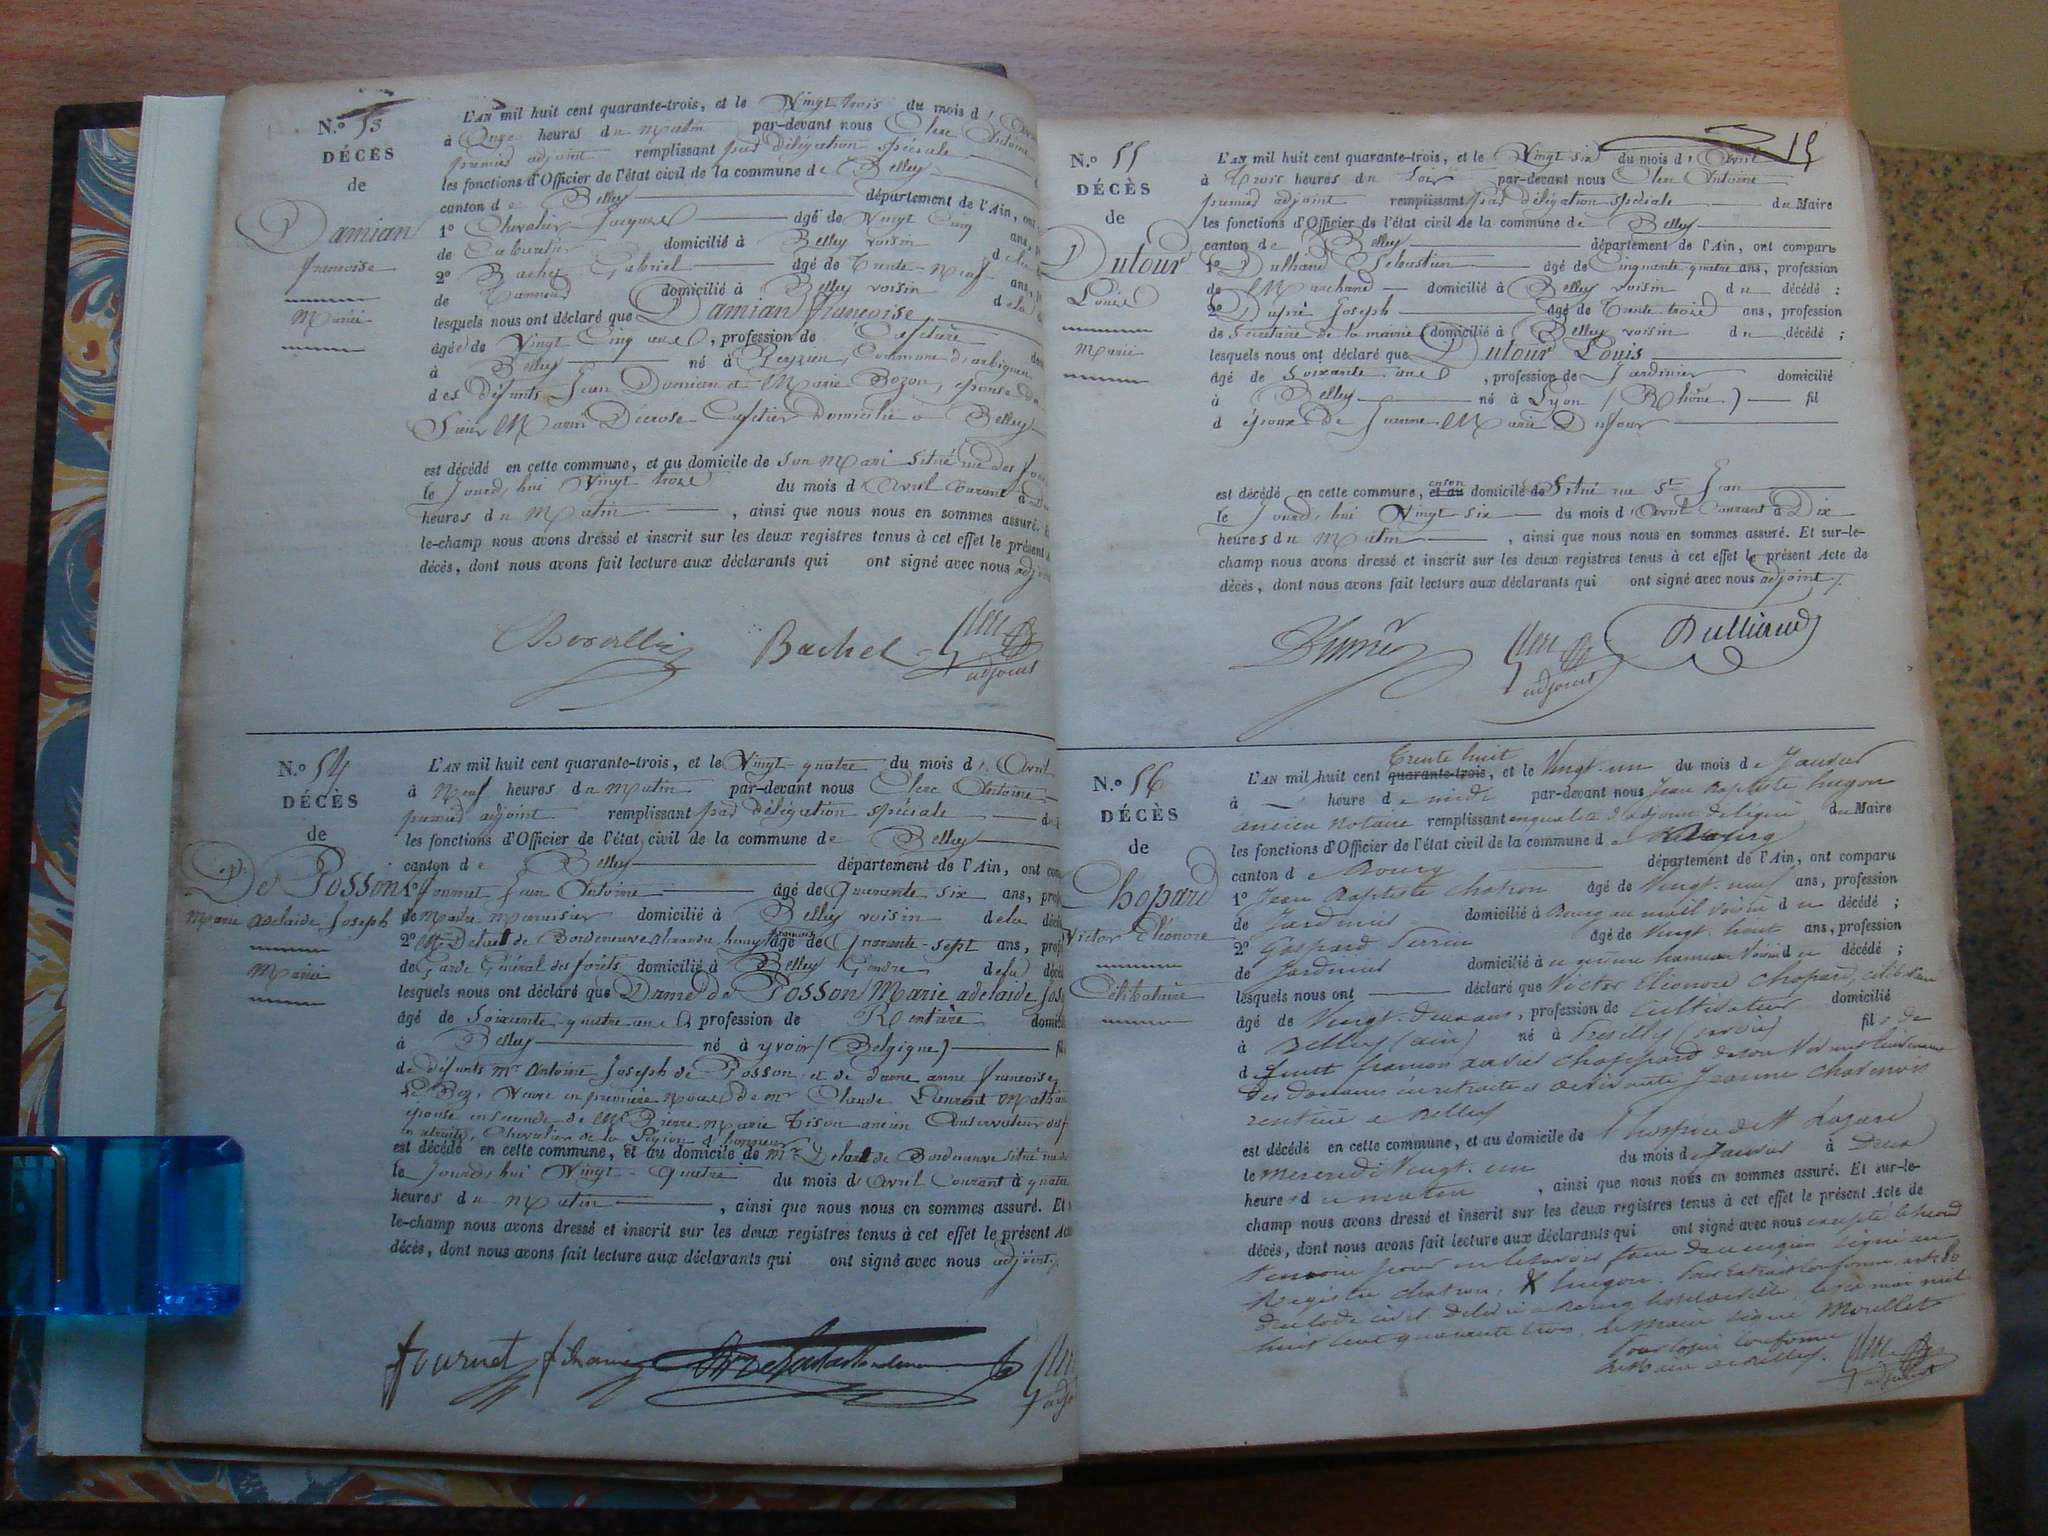 N.º 53
DÉCÈS
de
Damian
françoise
Mariée
L'AN mil huit cent quarante-trois, et le Vingt trois du mois d'
à Onze heures du Matin par-devant nous Clerc Antoine
premier adjoint remplissant par délégation spéciale
les fonctions d'Officier de l'état civil de la commune de Belley
canton de Belley département de l'Ain, ont
1º Chevalier Jacques âgé de Vingt Cinq ans,
de Cabaretier domicilié à Belley voisin
2º Bachel Gabriel âgé de Trente-Neuf ans,
de domicilié à Belley voisin de la
lesquels nous ont déclaré que Damian françoise
âgée de Vingt Cinq ans, profession de Cafetière
à Belley né à Peyzieu, Commune d'arbignieu
des défunts Jean Damian et Marie Bozon, épouse de
Sieur Marin Décrose Cafetier domicilié à Belley
est décédé en cette commune, et au domicile de son Mari situé rue des
le Jourd'hui Vingt trois du mois d'Avril Courant à
heures du Matin, ainsi que nous nous en sommes assuré.
le-champ nous avons dressé et inscrit sur les deux registres tenus à cet effet le présent
décès, dont nous avons fait lecture aux déclarants qui ont signé avec nous adjoint
Bachel Clerc
adjoint
N.º 54
DÉCÈS
de
De Posson
Marie adelaide Joseph
Mariée
L'AN mil huit cent quarante-trois, et le Vingt-quatre du mois d'Avril
à Neuf heures du Matin par-devant nous Clerc Antoine
premier adjoint remplissant par délégation spéciale
les fonctions d'Officier de l'état civil de la commune de Belley
canton de Belley département de l'Ain, ont
1º Jean Antoine âgé de Quarante six ans,
de Maître menuisier domicilié à Belley voisin de la
2º de Bordeneuve alexandre henry françois âgé de Quarante-sept ans,
de Garde Général des forêts domicilié à Belley Gendre de la
lesquels nous ont déclaré que Dame de Posson Marie adelaide
âgé de Soixante quatre ans, profession de Rentière
à Belley né à yvoir (Belgique) fil
de défunts Mr Antoine Joseph de Posson et de dame anne françoise
Veuve en première Noces de Mr Claude Laurent
épouse en seconde de Mr Pierre Marie Tison ancien Conservateur des
en retraite, Chevalier de la Légion d'honneur
est décédé en cette commune, et au domicile de Mr de Bordeneuve situé rue
le Jourd'hui Vingt-Quatre du mois d'Avril Courant à quatre
heures du Matin, ainsi que nous nous en sommes assuré. Et
le-champ nous avons dressé et inscrit sur les deux registres tenus à cet effet le présent
décès, dont nous avons fait lecture aux déclarants qui ont signé avec nous adjoint
15
N.º 55
DÉCÈS
de
Dutour
Louis
Marié
L'AN mil huit cent quarante-trois, et le Vingt six du mois d'Avril
à Trois heures du Soir par-devant nous Clerc Antoine
premier adjoint remplissant par délégation spéciale du Maire
les fonctions d'Officier de l'état civil de la commune de Belley
canton de Belley département de l'Ain, ont comparu
1º Dulliand Sébastien âgé de Cinquante quatre ans, profession
de Marchand domicilié à Belley voisin du décédé ;
2º Joseph âgé de Trente trois ans, profession
de Secrétaire de la mairie domicilié à Belley voisin du décédé ;
lesquels nous ont déclaré que Dutour Louis
âgé de Soixante ans, profession de Jardinier domicilié
à Belley né à Lyon (Rhône) fil
d époux de Jeanne Marie Dufour
est décédé en cette commune, et au en son domicile de Situé rue St Jean
le Jourd'hui Vingt six du mois d'Avril Courant à Dix
heures du Matin, ainsi que nous nous en sommes assuré. Et sur-le-
champ nous avons dressé et inscrit sur les deux registres tenus à cet effet le présent Acte de
décès, dont nous avons fait lecture aux déclarants qui ont signé avec nous adjoint
Clerc Dulliand
adjoint
N.º 56
DÉCÈS
de
Chopard
Victor Eléonore
Célibataire
Trente huit
L'AN mil huit cent quarante-trois, et le Vingt-un du mois de Janvier
à heure de midi par-devant nous Jean Baptiste hugon
ancien Notaire remplissant en qualité d'adjoint délégué du Maire
les fonctions d'Officier de l'état civil de la commune de Bourg
canton de Bourg département de l'Ain, ont comparu
1º Jean Baptiste Chatron âgé de Vingt-neuf ans, profession
de Jardinier domicilié à Bourg au mail voisin du décédé ;
2º Gaspard Perrin âgé de Vingt-huit ans, profession
de Jardinier domicilié à voisin du décédé ;
lesquels nous ont déclaré que Victor Eléonore Chopard, célibataire
âgé de Vingt-deux ans, profession de Cultivateur domicilié
à Belley (ain) né à (savoie) fils de
d feu françois xavier Choppard de son vivant
des Douanes en retraite et de vivante Jeanne
rentière à Belley
est décédé en cette commune, et au domicile de l'hospice de St Lazare
le mercredi Vingt-un du mois de Janvier à Deux
heures du matin, ainsi que nous nous en sommes assuré. Et sur-le-
champ nous avons dressé et inscrit sur les deux registres tenus à cet effet le présent Acte de
décès, dont nous avons fait lecture aux déclarants qui ont signé avec nous excepté le second
témoin pour ne le savoir faire de ce requis signé au
Registre Chatron, & hugon. Pour Extrait Conforme
du Code civil délivré à Bourg hôtel de Ville, mai mil
huit cent quarante trois, le maire signé Morellet
Pour Copie Conforme
adjoint